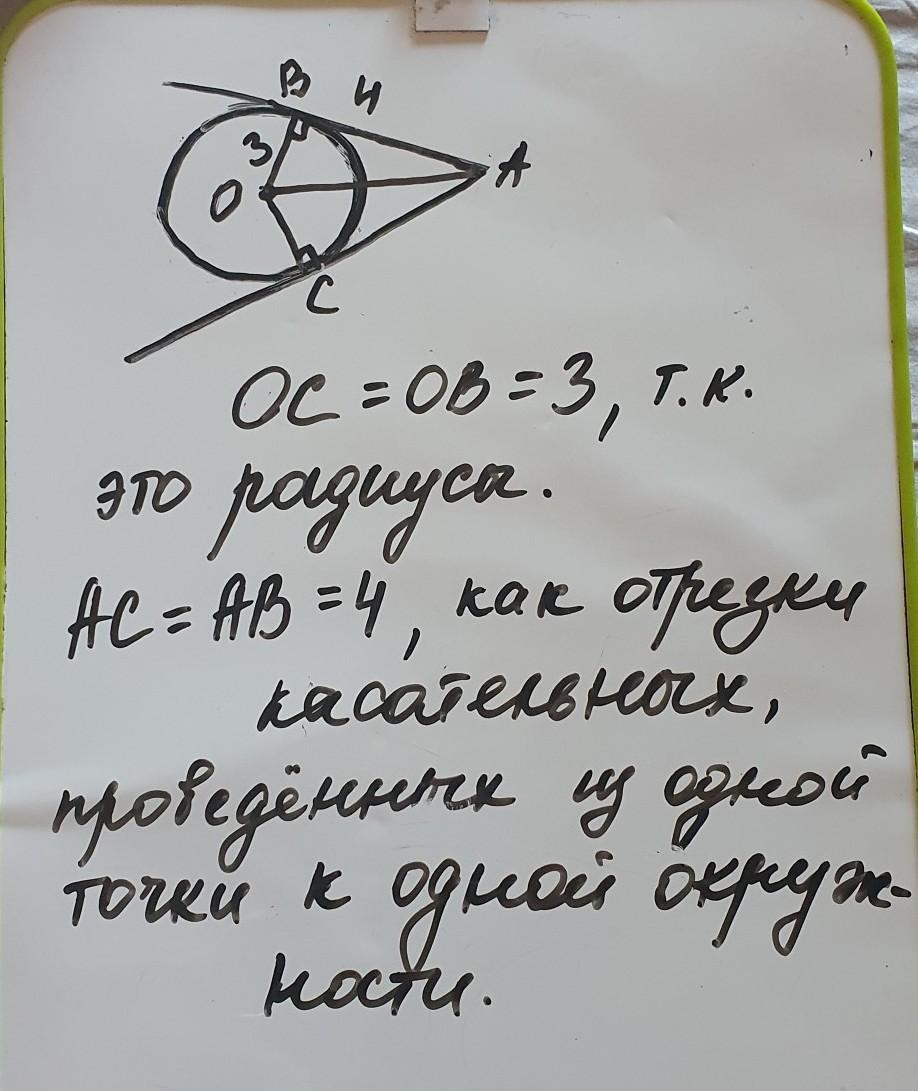 B 4
3
A
O
C
OC = OB = 3, т.к.
это радиусы.
AC = AB = 4, как отрезки
касательных,
проведённых из одной
точки к одной окруж-
ности.